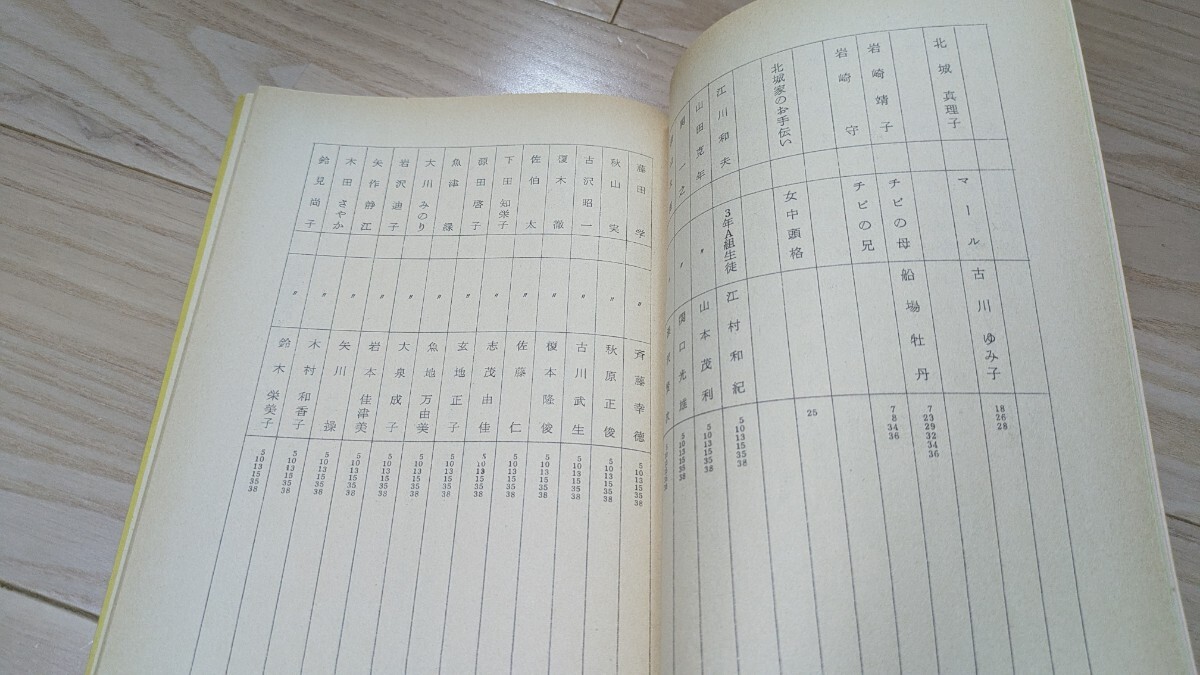 北城 真理子 マール 古川 ゆみ子 18 26 28
岩崎靖子 チビの母 船場牡丹 7 23 29 32 34 36
岩崎 守 チビの兄 7 8 34 36
北城家のお手伝い 女中頭格 25
江川和夫 3年A組生徒 江村和紀 5 10 13 15 35 38
山田克年 〃 山本茂利 5 10 13 15 35 38
〃 関口光雄 5 10 13 15 35 38
藤田 学 〃 斉藤幸徳 5 10 13 15 35 38
秋山 実 〃 秋原正俊 5 10 13 15 35 38
古沢昭一 〃 古川武生 5 10 13 15 35 38
榎木 徹 〃 榎本隆俊 5 10 13 15 35 38
佐伯 太 〃 佐藤 仁 5 10 13 15 35 38
下田 知栄子 〃 志茂由佳 5 10 13 15 35 38
源田啓子 〃 玄地正子 5 10 13 15 35 38
魚津 緑 〃 魚地 万由美 5 10 13 15 35 38
大川 みのり 〃 大泉成子 5 10 13 15 35 38
岩沢迪子 〃 岩本 佳津美 5 10 13 15 35 38
矢作静江 〃 矢川 操 5 10 13 15 35 38
木田 さやか 〃 木村 和香子 5 10 13 15 35 38
鈴見尚子 〃 鈴木 栄美子 5 10 13 15 35 38